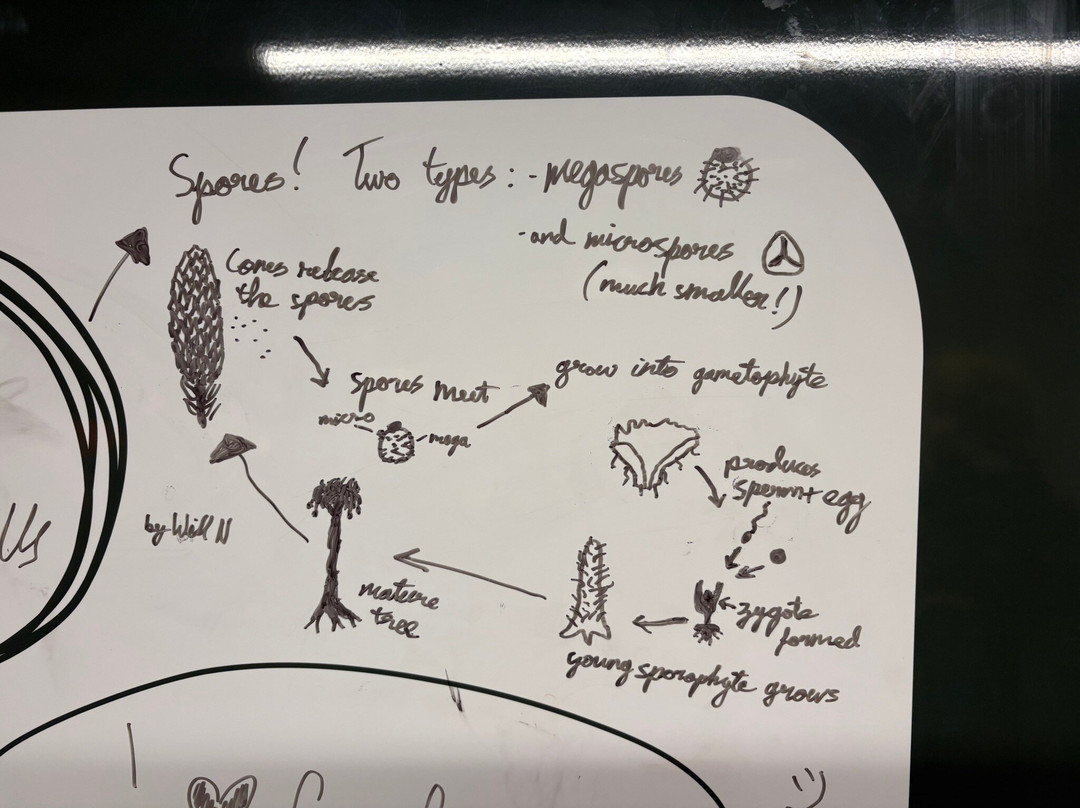 Spores! Two types: - megaspores
- and microspores
(much smaller!)
Cones release
the spores
spores meet
micro
mega
grow into gametophyte
produces
sperm + egg
zygote
formed
young sporophyte grows
mature
tree
by Will N